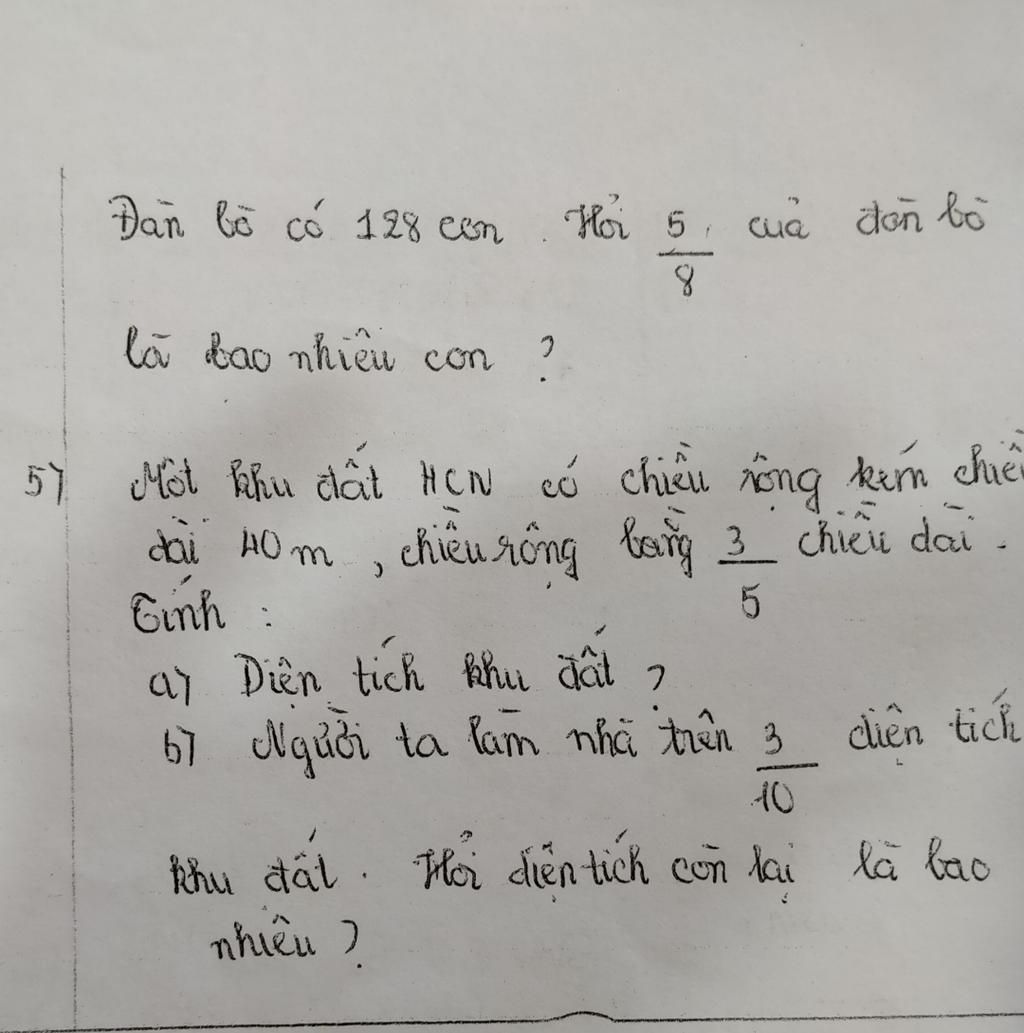 Đàn bò có 128 con. Hỏi 5/8 của đàn bò
là bao nhiêu con ?
5) Một khu đất HCN có chiều rộng kém chiều
dài 40 m, chiều rộng bằng 3/5 chiều dài.
Tính :
a) Diện tích khu đất ?
b) Người ta làm nhà trên 3/10 diện tích
khu đất. Hỏi diện tích còn lại là bao
nhiêu ?